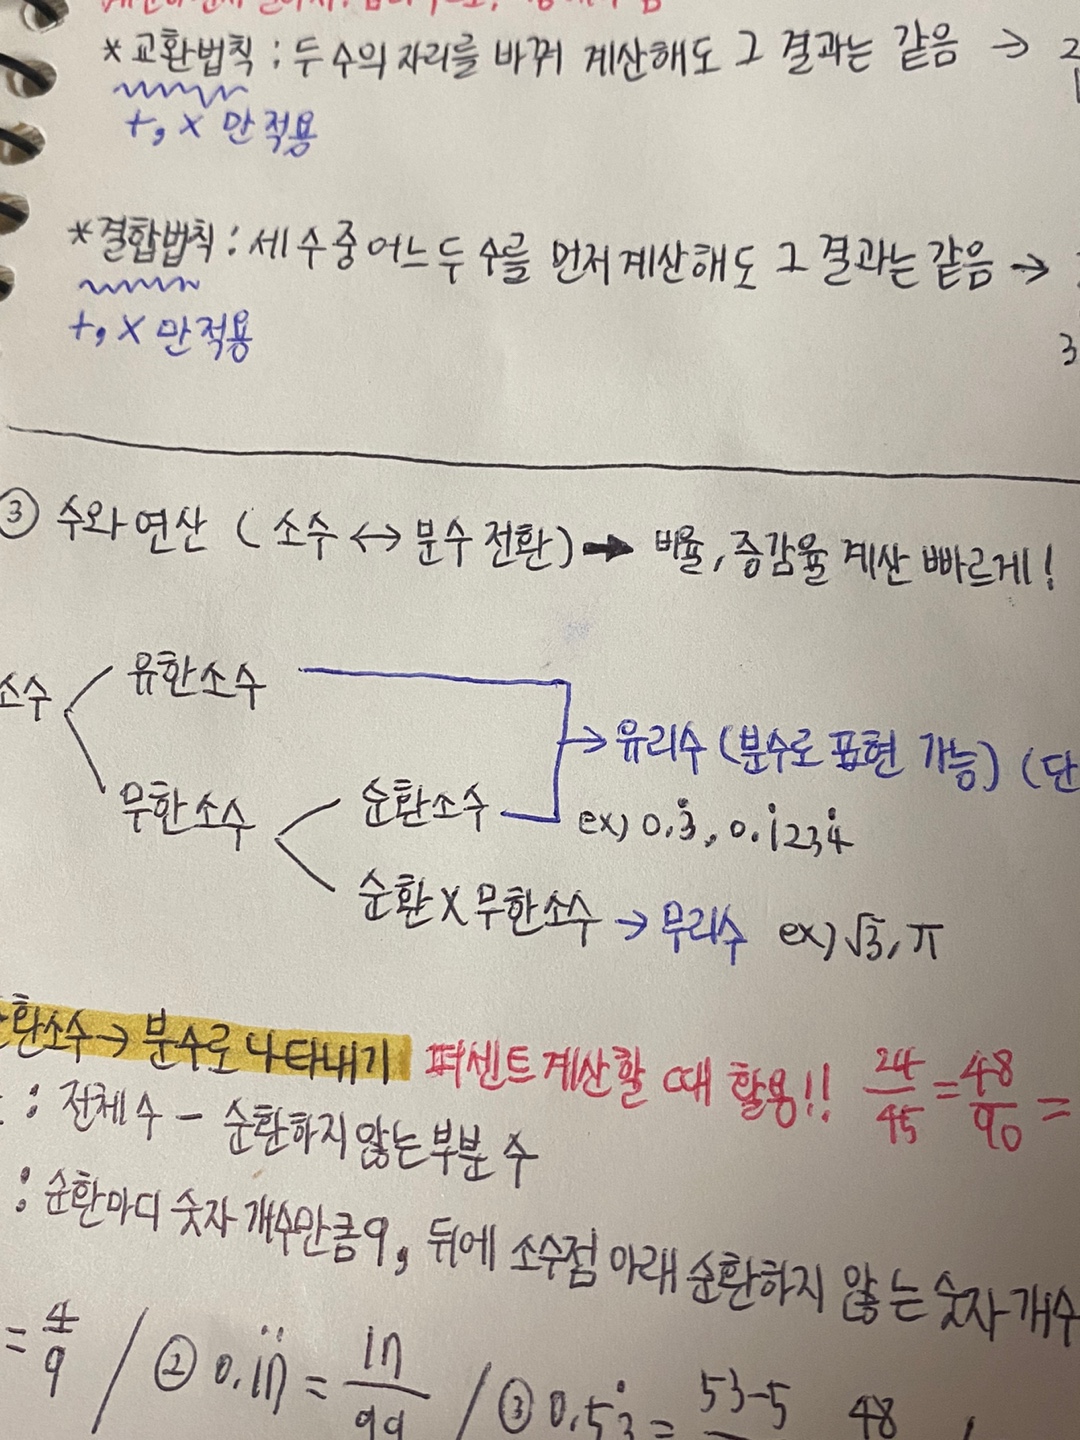 * 교환법칙 : 두 수의 자리를 바꿔 계산해도 그 결과는 같음 →
+, × 만 적용
* 결합법칙 : 세 수 중 어느 두 수를 먼저 계산해도 그 결과는 같음 →
+, × 만 적용
3
③ 수와 연산 ( 소수 ↔ 분수 전환 ) ➡ 비율, 증감율 계산 빠르게!
소수
유한소수
→ 유리수 (분수로 표현 가능) (단
무한소수
순환소수
ex) 0.3̇, 0.1̇234̇
순환 X 무한소수 → 무리수 ex) √3, π
환소수 → 분수로 나타내기 퍼센트 계산할 때 활용!! 24/45 = 48/90 =
: 전체 수 - 순환하지 않는 부분 수
: 순환마디 숫자 개수만큼 9, 뒤에 소수점 아래 순환하지 않는 숫자 개수
= 4/9 / ② 0.1̇7̇ = 17/99 / ③ 0.53̇ = 53-5 48